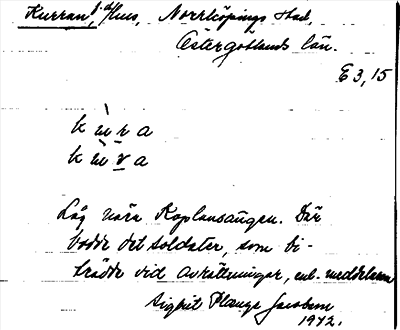 Kurran, f.d. Hus, Norrköpings stad,
Östergötlands län.
E 3, 15
k u r a
k u r a
Låg nära Kaplansängen. Där
bodde det soldater, som bi-
trädde vid avrättningar, enl. meddelaren
Sigbrit Plange Jacobson
1942.